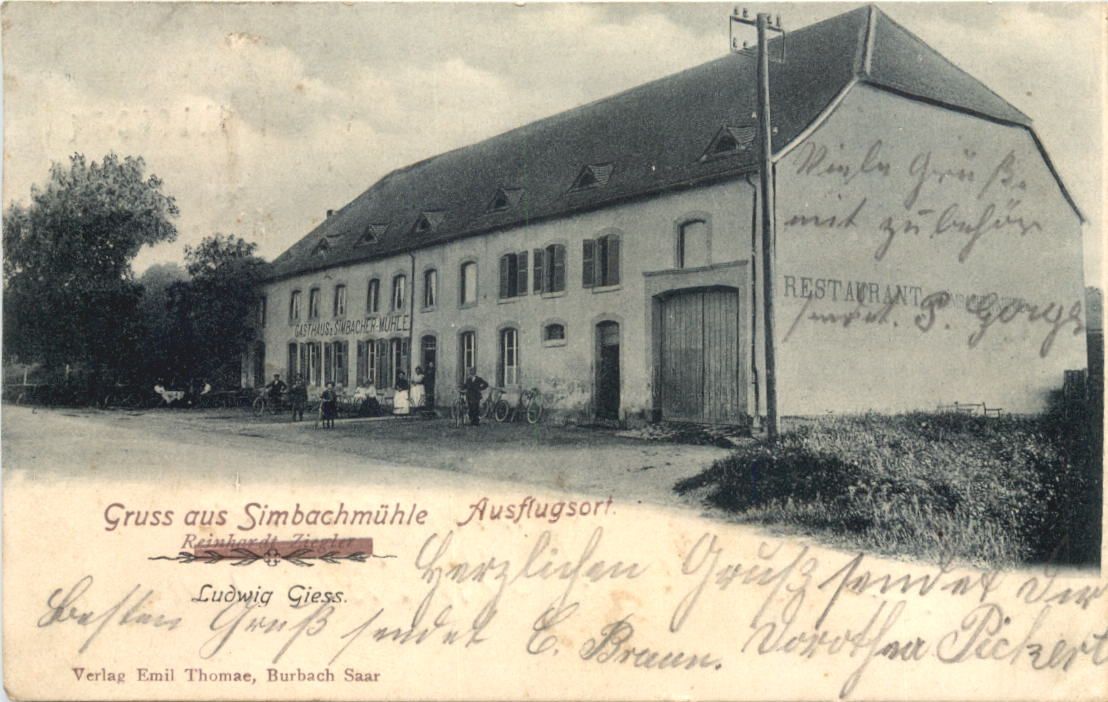 Viele Grüße
mit zubehör
RESTAURANT
sendet. P. Gorges
GASTHAUS z. SIMBACHER-MÜHLE
Gruss aus Simbachmühle Ausflugsort.
Reinhardt Ziegler
Ludwig Giess.
Herzlichen Gruß sendet Dir
Dorothea Pickert
Besten Gruß sendet C. Braun.
Verlag Emil Thomae, Burbach Saar